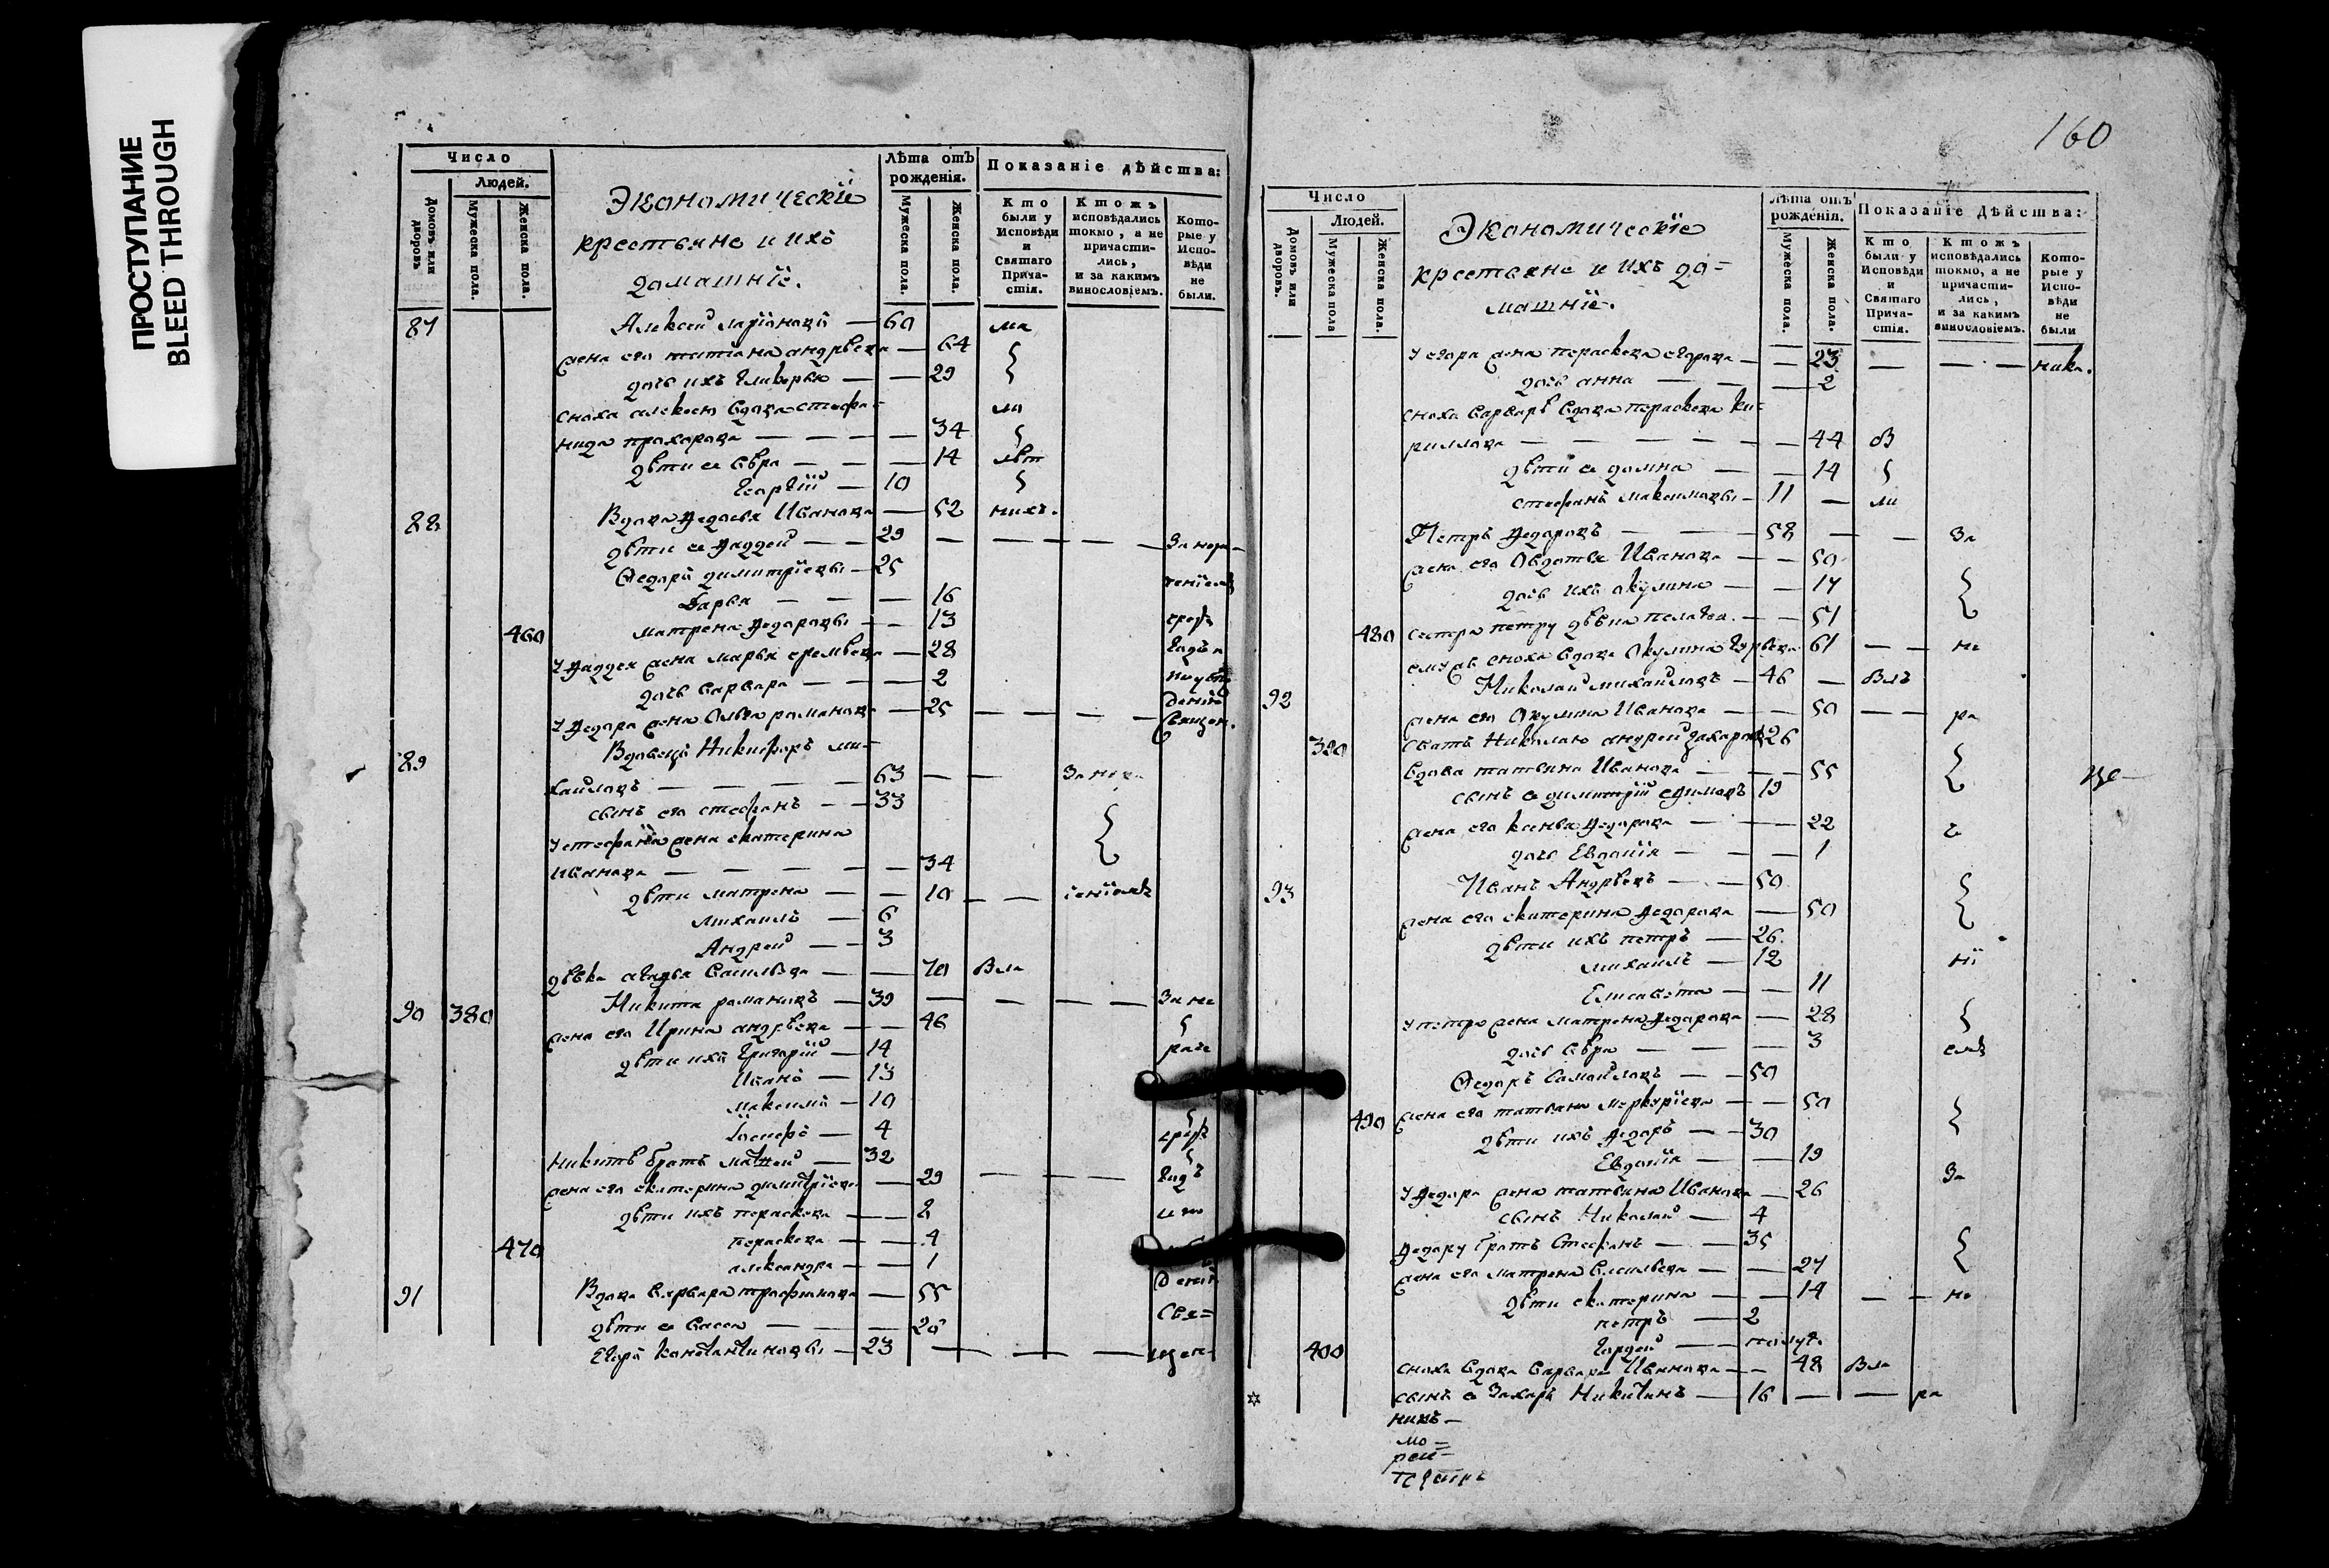 ПРОСТУПАНИЕ
BLEED THROUGH
Число
Людей.
Домовъ или дворовъ
Мужеска пола.
Женска пола.
Экономическїе
крестьяне и ихъ
домашнїе.
Лѣта отъ рожденія.
Мужеска пола.
Женска пола.
Показаніе дѣйства:
Кто были у Исповѣди и Святаго Прича-стія.
Ктожъ исповѣдались токмо, а не причасти-лись, и за какимъ винословіемъ.
Кото-рые у Испо-вѣди не были.
87 Алексей Ларїоновъ — 60
жена его татїана андрѣева — 64
дочь ихъ Гликерья — — 29
сноха алексею вдова стефа=
нида прохорова — — — 34
дѣти ея Евра — — — 14
Георгїй — 10
88 Вдова Федосья Иванова — 52
дѣти ея Фаддей — — 29
Ѳедоръ димитрїевы — 25
Дарья — — — 16
460 матрена Федоровы — 13
У Фаддея жена марья еремѣева — 28
дочь варвара — — — 2
У Федора жена Ольга романова — 25 — — — — Священ.
89 Вдовецъ Никифоръ ми=
хайловъ — — — — 63
сынъ его стефанъ — — 33
У стефана жена екатерина
иванова — — — — — 34
дѣти матрена — — 10
михаилъ — 6
Андрей — — 3
дѣвка агафья васильева — — 70
90 380 Никита романовъ — 39 — — — — За не
жена его Ирина андрѣева — — 46
дѣти ихъ Григорїй — 14
Иванъ — 13
максимъ — 10
Іосифъ — 4
Никитѣ братъ матѳей — 32
жена его екатерина димитрїева — 29
дѣти ихъ параскева — — 8
470 параскева — — 4
александра — — 1
91 Вдова варвара трофимова — 55
дѣти ея васса — — — 26
Егоръ константиновы — 23 — — — щен-
160
Число
Людей.
Домовъ или дворовъ.
Мужеска пола
Женска пола.
Экономическїе
крестьяне и ихъ до=
машнїе.
Лѣта отъ рожденія.
Мужеска пола.
Женска пола.
Показаніе Дѣйства:
Кто были у Исповѣди и Святаго Прича-стія.
Ктожъ исповѣдались токмо, а не причасти-лись, и за какимъ винословіемъ.
Кото-рые у Испо-вѣди не были
У егора жена параскева егорова — — 23
дочь анна — — — 2
сноха варварѣ вдова параскева ки=
риллова — — — — 44 в
дѣти ея домна — — 14
стефанъ максимовы — 11 — ли
Петръ Федоровъ — — 58 — — За
жена его Овдотья Иванова — — 50
дочь ихъ акулина — — 17
480 сестра петру дѣвка пелагея — — 51
ему жъ сноха вдова Окулина Гурьева 61 — — не
92 Николай михайловъ — 46
жена его Окулина Иванова — — 50 — — ра
390 сватъ Николаю андрей захаровъ 26
вдова татьяна Иванова — — 55
сынъ ея димитрїй ефимовъ 19
жена его ксенья Федорова — — 22
дочь Евдокїя — — — 1
93 Иванъ Андрѣевъ — — 50
жена его екатерина Федорова — 50
дѣти ихъ петръ — 26.
михаилъ — 12 нї
Елисавета — — 11
У петра жена матрена Федорова — 28
дочь Евра — — — 3 емъ
Ѳедоръ Самойловъ — — 50
490 жена его татьяна меркурїева — — 50
дѣти ихъ Федоръ — — 30
Евдокїя — — 19
У Федора жена татьяна Иванова — 26 За
сынъ Николай — 4
Федору братъ Стефанъ — — 35
жена его матрена васильева — — 27
дѣти екатерина — — 14 — — не
петръ — 2
400 Гордей — полуг.
сноха вдова варвара Иванова — — 48
сынъ ея Захаръ Никитинъ — 16 — — ра